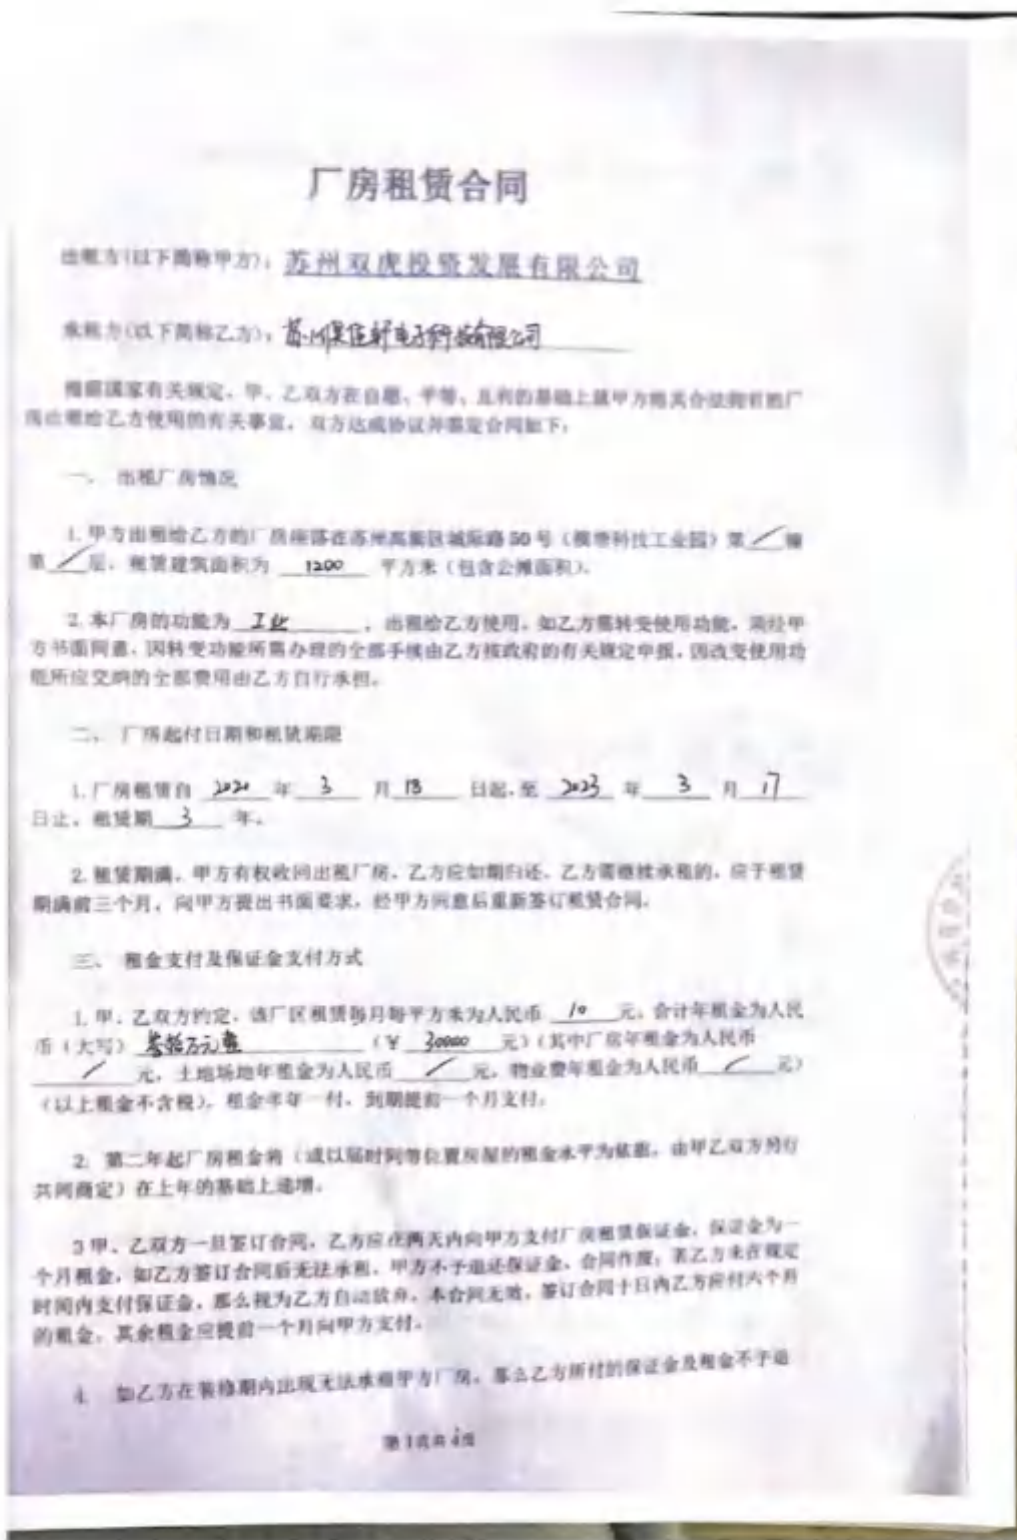 厂房租赁合同
出租方(以下简称甲方)：苏州双虎投资发展有限公司
承租方(以下简称乙方)：苏州 佳轩电子科技有限公司
根据国家有关规定，甲、乙双方在自愿、平等、互利的基础上就甲方将其合法拥有的厂
房出租给乙方使用的有关事宜，双方达成协议并签定合同如下：
一、 出租厂房情况
1.甲方出租给乙方的厂房座落在苏州高新区城际路50号（横塘科技工业园）第／幢
第／层，租赁建筑面积为 1200 平方米（包含公摊面积）。
2.本厂房的功能为 工业 ，出租给乙方使用。如乙方需转变使用功能，须经甲
方书面同意，因转变功能所需办理的全部手续由乙方按政府的有关规定申报，因改变使用功
能所应交纳的全部费用由乙方自行承担。
二、 厂房起付日期和租赁期限
1.厂房租赁自 2020 年 3 月 18 日起，至 2023 年 3 月 17
日止。租赁期 3 年。
2.租赁期满，甲方有权收回出租厂房，乙方应如期归还，乙方需继续承租的，应于租赁
期满前三个月，向甲方提出书面要求，经甲方同意后重新签订租赁合同。
三、 租金支付及保证金支付方式
1.甲、乙双方约定，该厂区租赁每月每平方米为人民币 10 元，合计年租金为人民
币（大写） 元整 （￥ 30000 元）（其中厂房年租金为人民币
／ 元，土地场地年租金为人民币 ／ 元，物业费年租金为人民币 ／ 元）
（以上租金不含税）。租金半年一付，到期提前一个月支付。
2. 第二年起厂房租金将（或以届时同等位置房屋的租金水平为依据，由甲乙双方另行
共同商定）在上年的基础上递增。
3甲、乙双方一旦签订合同，乙方应在两天内向甲方支付厂房租赁保证金，保证金为一
个月租金，如乙方签订合同后无法承租，甲方不予退还保证金，合同作废；若乙方未在规定
时间内支付保证金，那么视为乙方自动放弃，本合同无效，签订合同十日内乙方应付六个月
的租金，其余租金应提前一个月向甲方支付。
4. 如乙方在装修期内出现无法承租甲方厂房，那么乙方所付的保证金及租金不予退
第1页共4页